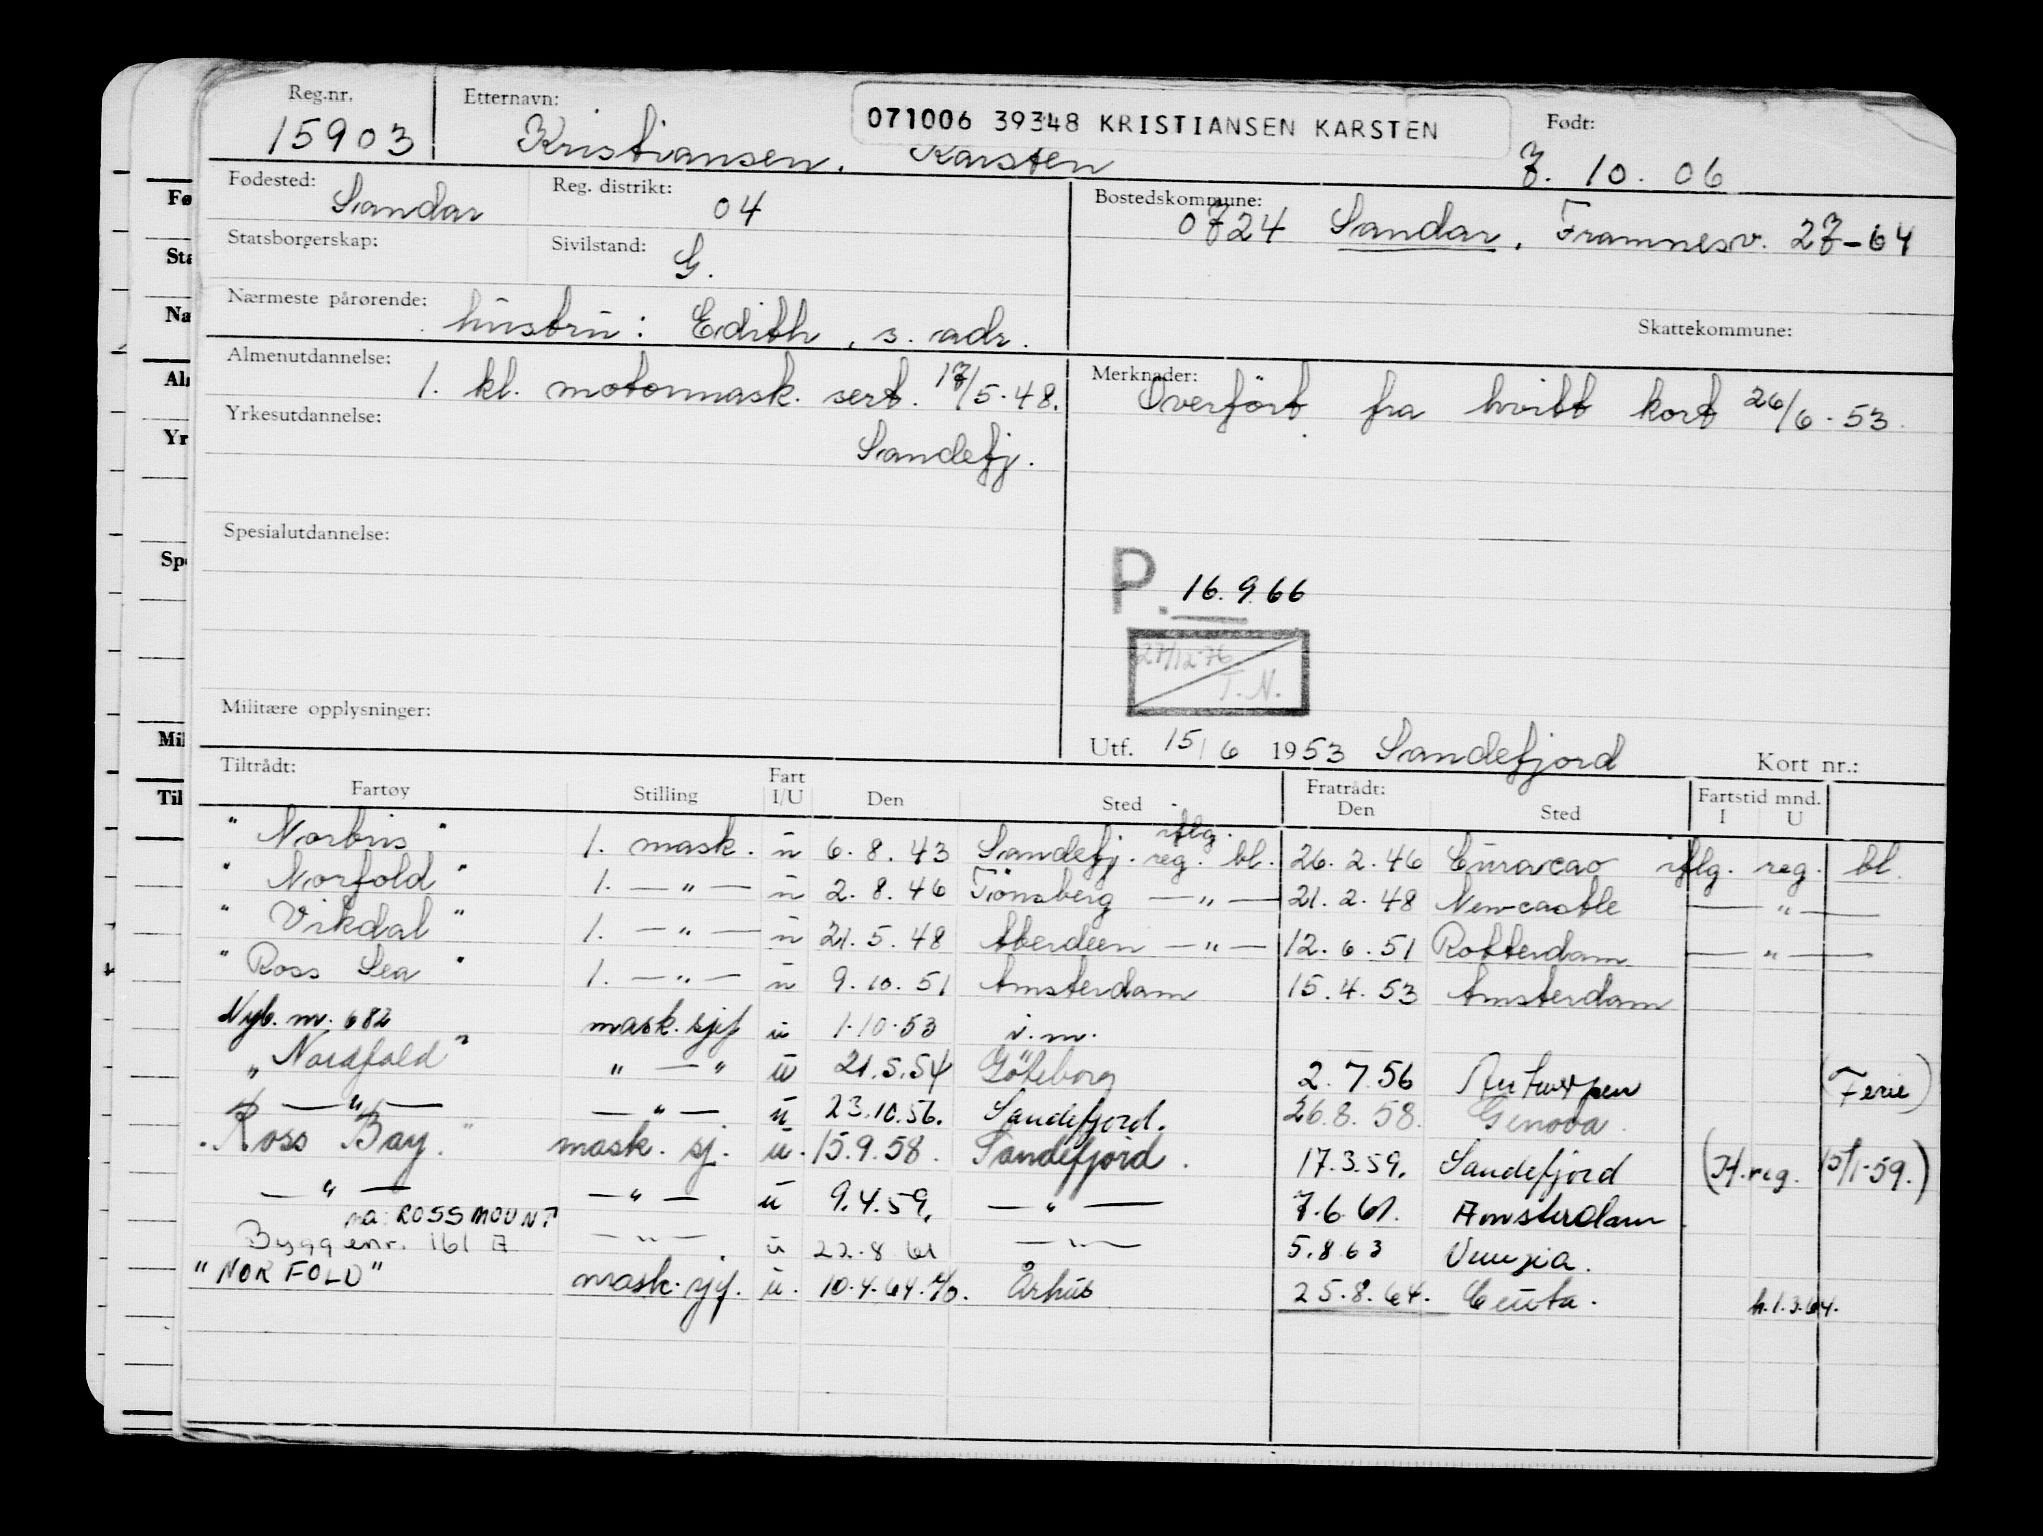 Reg.nr. Etternavn: 071006 39348 KRISTIANSEN KARSTEN Født:
15903 Kristiansen, Karsten 7. 10. 06
Fødested: Sandar Reg. distrikt: 04 Bostedskommune:
0724 Sandar, Framnesv. 27-64
Statsborgerskap: Sivilstand: G.
Nærmeste pårørende: hustru: Edith, s. adr. Skattekommune:
Almenutdannelse: 1. kl. motormask. sert. 17/5.48. Merknader: Overfört fra hvitt kort 26/6.53.
Yrkesutdannelse:
Sandefj.
Spesialutdannelse:
P. 16.9.66
27/12 76
T.N.
Militære opplysninger:
Utf. 15/6 1953 Sandefjord Kort nr.:
Tiltrådt: Fratrådt: Fartstid mnd.
Fartøy Stilling Fart I/U Den Sted Den Sted I U
"Norbris" 1. mask. u 6.8.43 Sandefj. iflg. reg. bl. 26.2.46 Curacao iflg. reg. bl.
"Norfold" 1. — " — u 2.8.46 Tönsberg — " — 21.2.48 Newcastle — " —
"Vikdal" 1. — " — u 21.5.48 Aberdeen — " — 12.6.51 Rotterdam — " —
"Ross Sea" 1. — " — u 9.10.51 Amsterdam 15.4.53 Amsterdam
Nyb. nr. 682 mask. sjef u 1.10.53
"Nordfold" " — " u 21.5.54 Göteborg 2.7.56 Antwerpen (Ferie)
— " — — " — u 23.10.56. Sandefjord. 26.8.58. Genova.
"Ross Bay" mask. sj. u. 15.9.58. Sandefjord. 17.3.59. Sandefjord (H.reg. 15/1-59.)
— " — — " — u 9.4.59. — " — 7.6.61. Amsterdam
na: ROSSMOUNT
Byggenr. 161 A — " — u 22.8.61 — " — 5.8.63 Venezia.
"NORFOLD" mask. sjf. u. 10.4.64. Århus 25.8.64. Ceuta. h.1.3.64.
Fø
Sta
Na
Al
Yr
Sp
Mil
Til